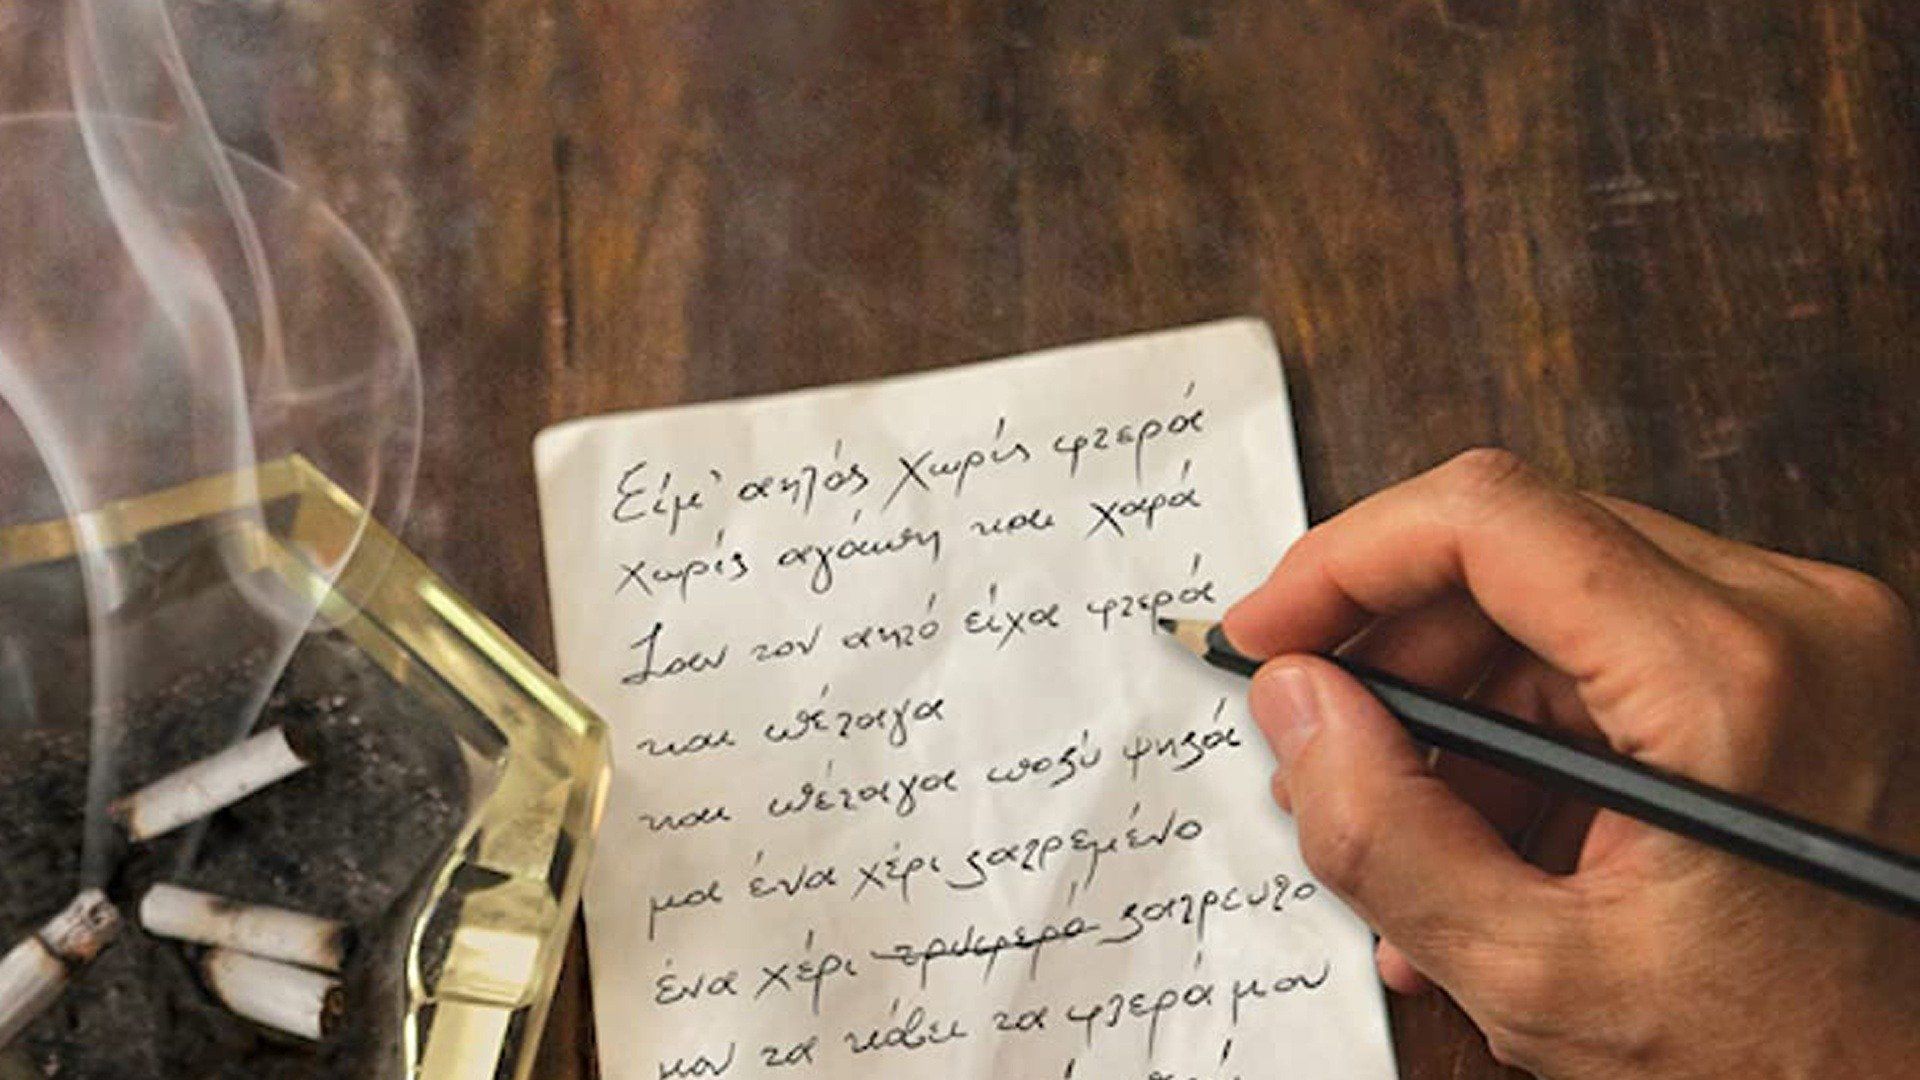 Είμ' αητός χωρίς φτερά
χωρίς αγάπη και χαρά
Σαν τον αητό είχα φτερά
και πέταγα
και πέταγα πολύ ψηλά
μα ένα χέρι λατρεμένο
ένα χέρι τρυφερό λατρευτό
μου τα κόβει τα φτερά μου